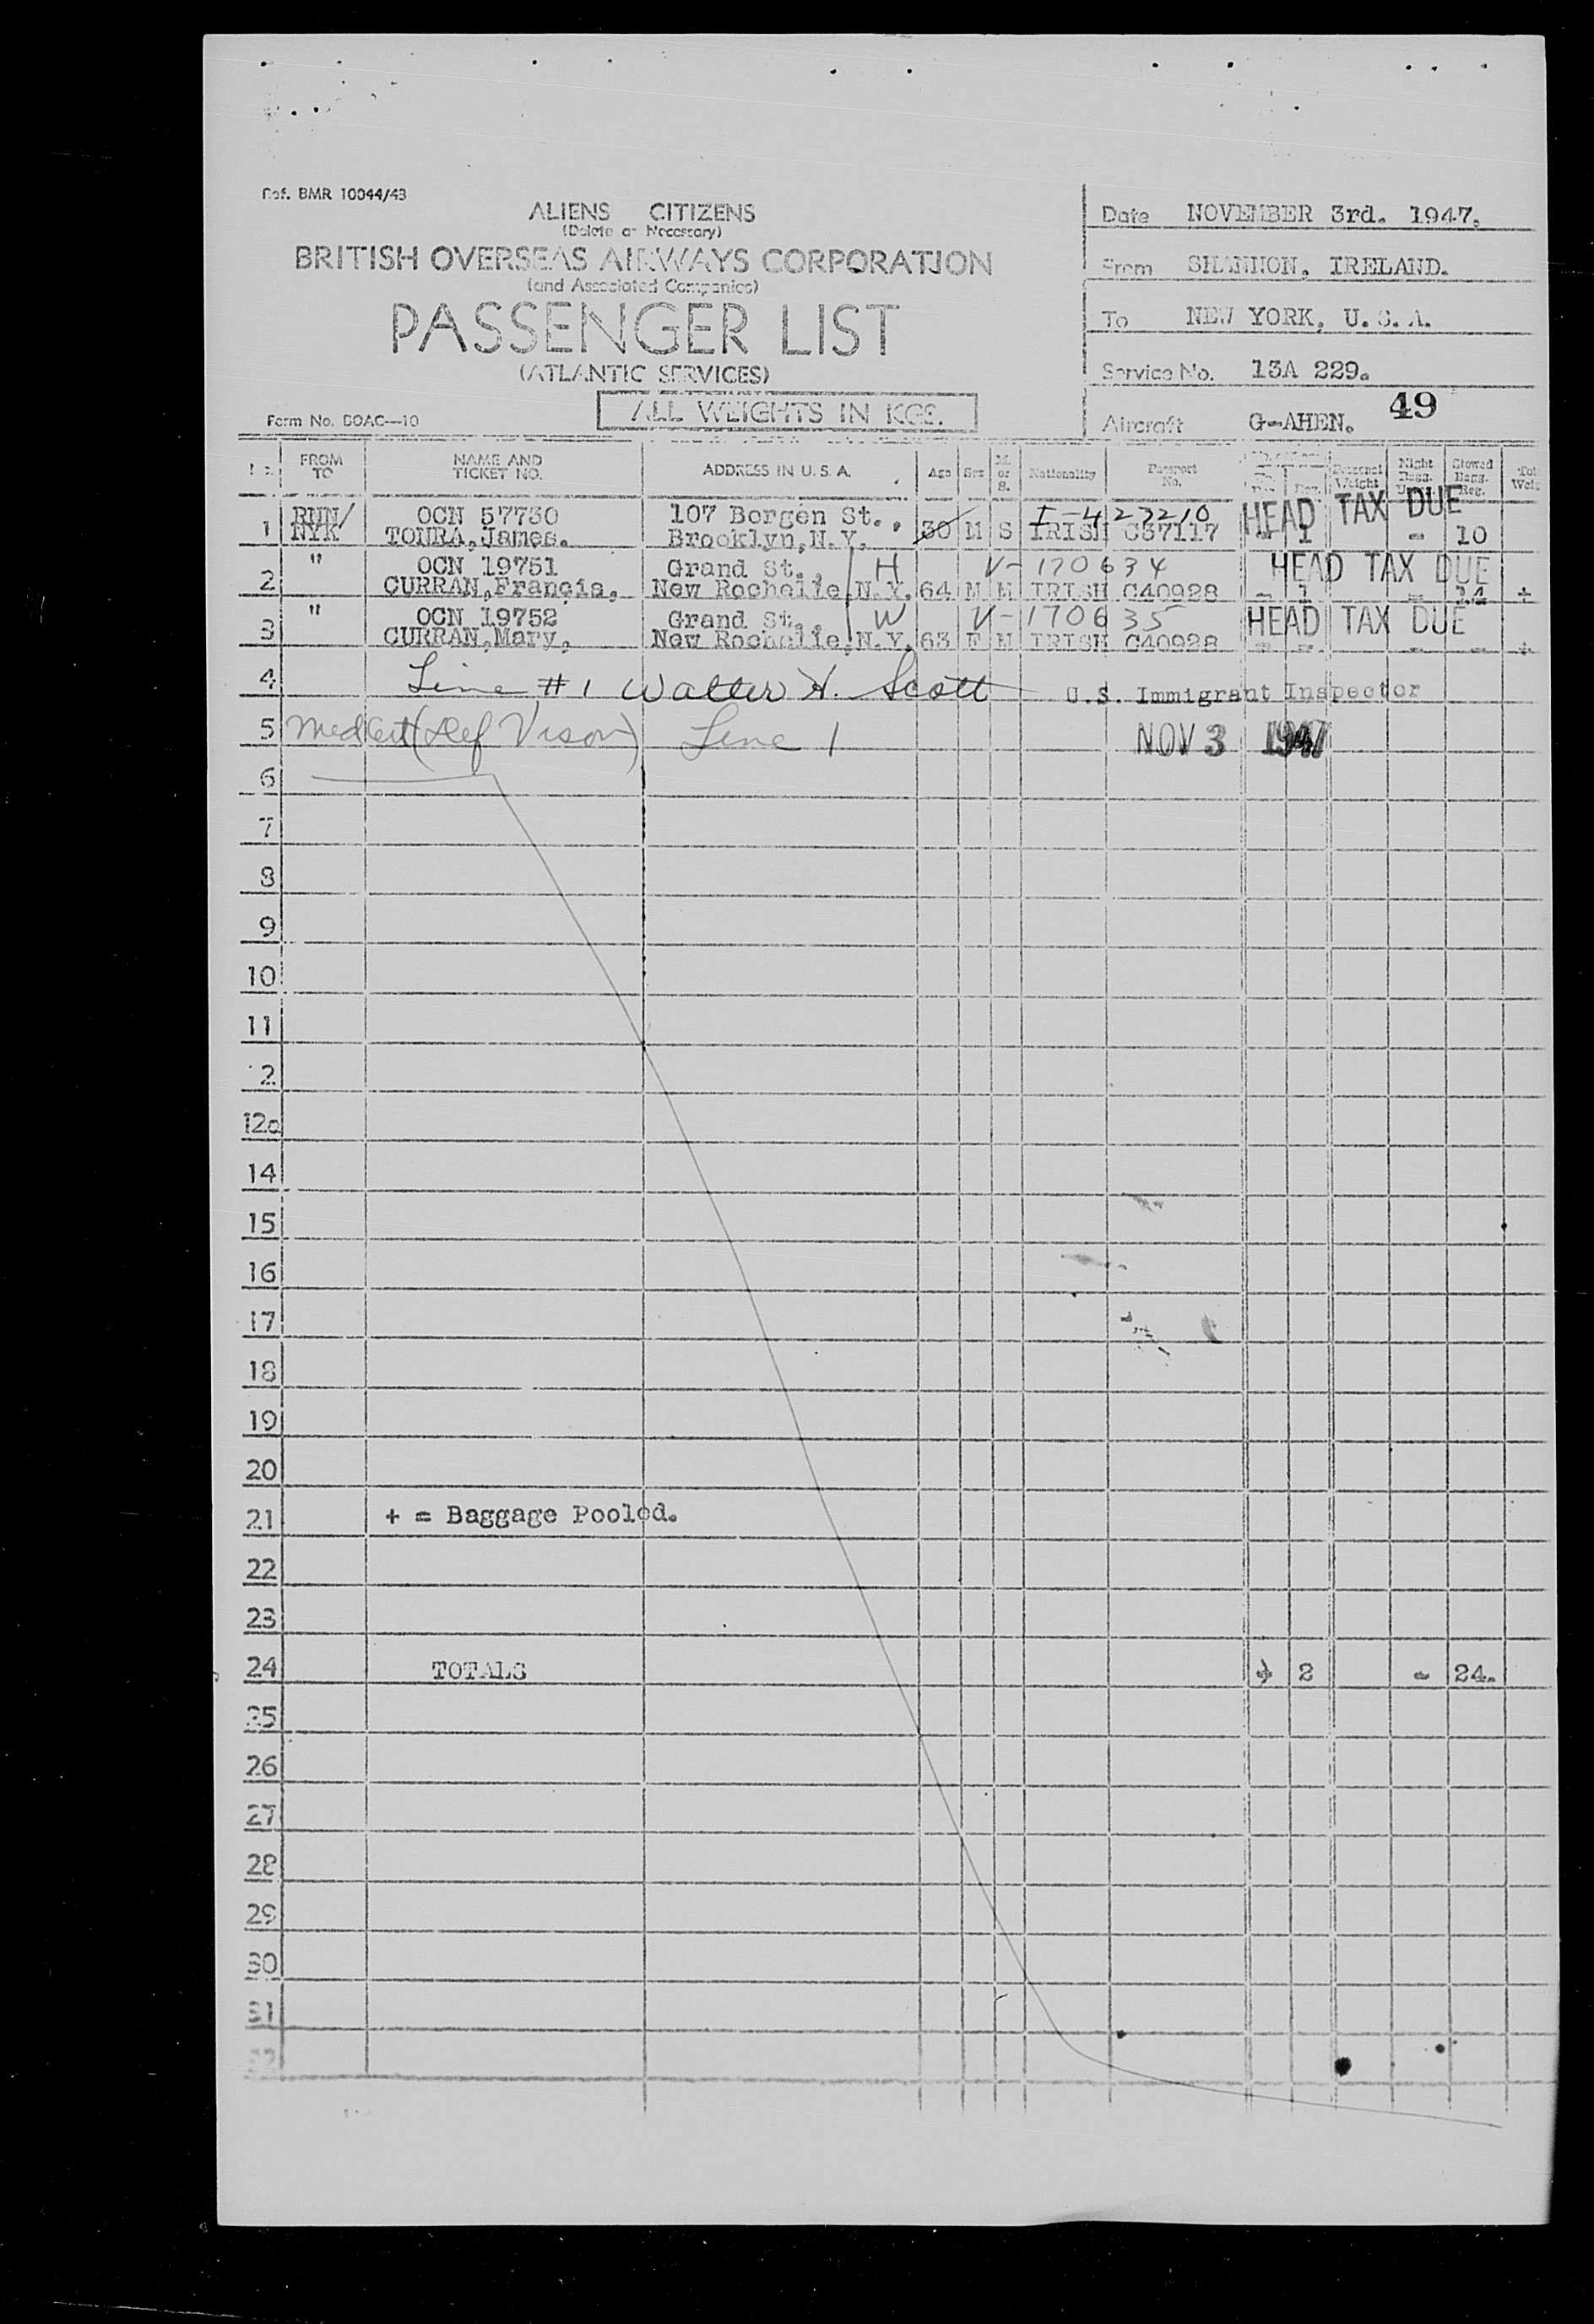 Ref. BMR 10044/43
ALIENS CITIZENS
(Delete as Necessary)
BRITISH OVERSEAS AIRWAYS CORPORATION
(and Associated Companies)
PASSENGER LIST
(ATLANTIC SERVICES)
ALL WEIGHTS IN KGS.
Form No. BOAC—10
Date NOVEMBER 3rd. 1947.
From SHANNON, IRELAND.
To NEW YORK, U.S.A.
Service No. 13A 229.
49
Aircraft G-AHEN.
No. FROM TO NAME AND TICKET NO. ADDRESS IN U.S.A. Age Sex M. or S. Nationality Passport No. Personal Weight Night Bagg. Stowed Bagg. Reg.
RNN/ OCN 57730 107 Bergen St., I-423210 HEAD TAX DUE
1 NYK TOURA, James. Brooklyn, N.Y. 30 M S IRISH C37117 - 1 - 10
" OCN 19751 Grand St., H V-170634 HEAD TAX DUE
2 CURRAN, Francis, New Rochelle, N.Y. 64 M M IRISH C40928 - 1 - 14 +
" OCN 19752 Grand St., W V-170635 HEAD TAX DUE
3 CURRAN, Mary, New Rochelle, N.Y. 63 F M IRISH C40928 - - - - +
4 Line #1 Walter H. Scott U.S. Immigrant Inspector
5 Med Cert (Def Vison) Line 1 NOV 3 1947
6
7
8
9
10
11
12
12a
14
15
16
17
18
19
20
21 + = Baggage Pooled.
22
23
24 TOTALS 2 - 24.
25
26
27
28
29
30
31
32